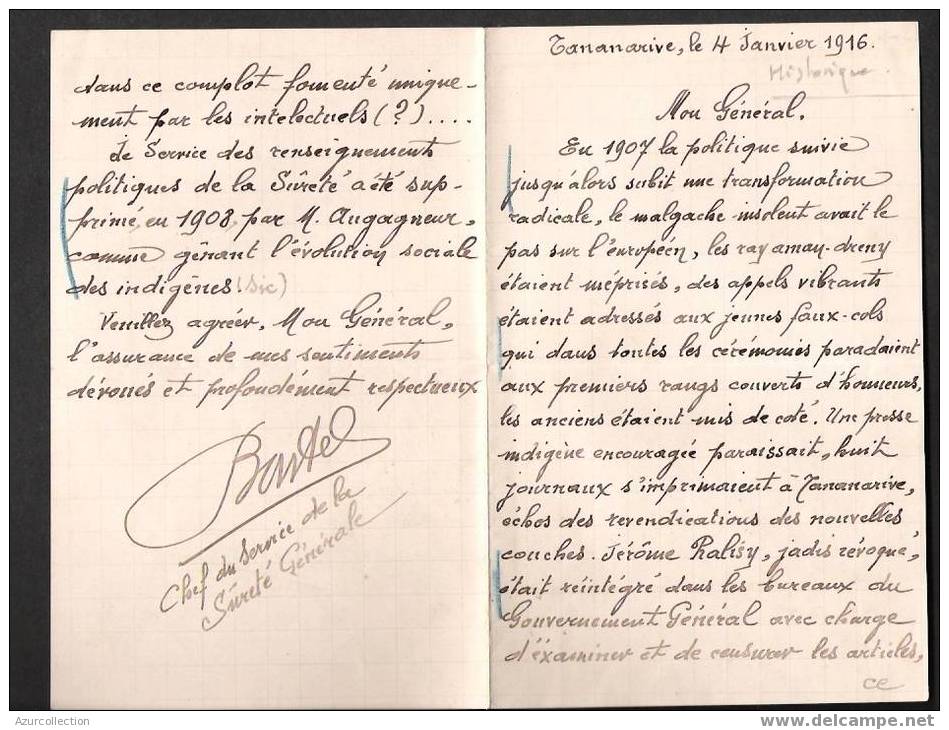 Tananarive, le 4 Janvier 1916.
Historique.
Mon Général.
En 1907 la politique suivie
jusqu'alors subit une transformation
radicale, le malgache insolent avait le
pas sur l'européen, les ray aman-dreny
étaient méprisés, des appels vibrants
étaient adressés aux jeunes faux-cols
qui dans toutes les cérémonies paradaient
aux premiers rangs couverts d'honneurs,
les anciens étaient mis de coté. Une presse
indigène encouragée paraissait, huit
journaux s'imprimaient à Tananarive,
échos des revendications des nouvelles
couches. Jérôme Ralisy, jadis révoqué,
était réintégré dans les bureaux du
Gouvernement Général avec charge
d'examiner et de censurer les articles,
ce
dans ce complot fomenté unique-
ment par les intelectuels (?)....
Le Service des renseignements
politiques de la Sûreté a été sup-
primé, en 1908, par M. Augagneur,
comme gênant l'évolution sociale
des indigènes! (sic)
Veuillez agréer, Mon Général,
l'assurance de mes sentiments
dévoués et profondément respectueux
Chef du Service de la
Sûreté Générale
Azurcollection
www.delcampe.net